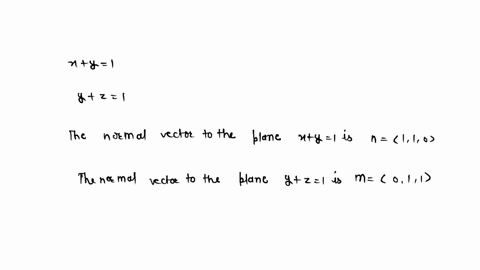 x+y=1
y+z=1
The normal vector to the plane x+y=1 is n=⟨1,1,0⟩
The normal vector to the plane y+z=1 is m=⟨0,1,1⟩